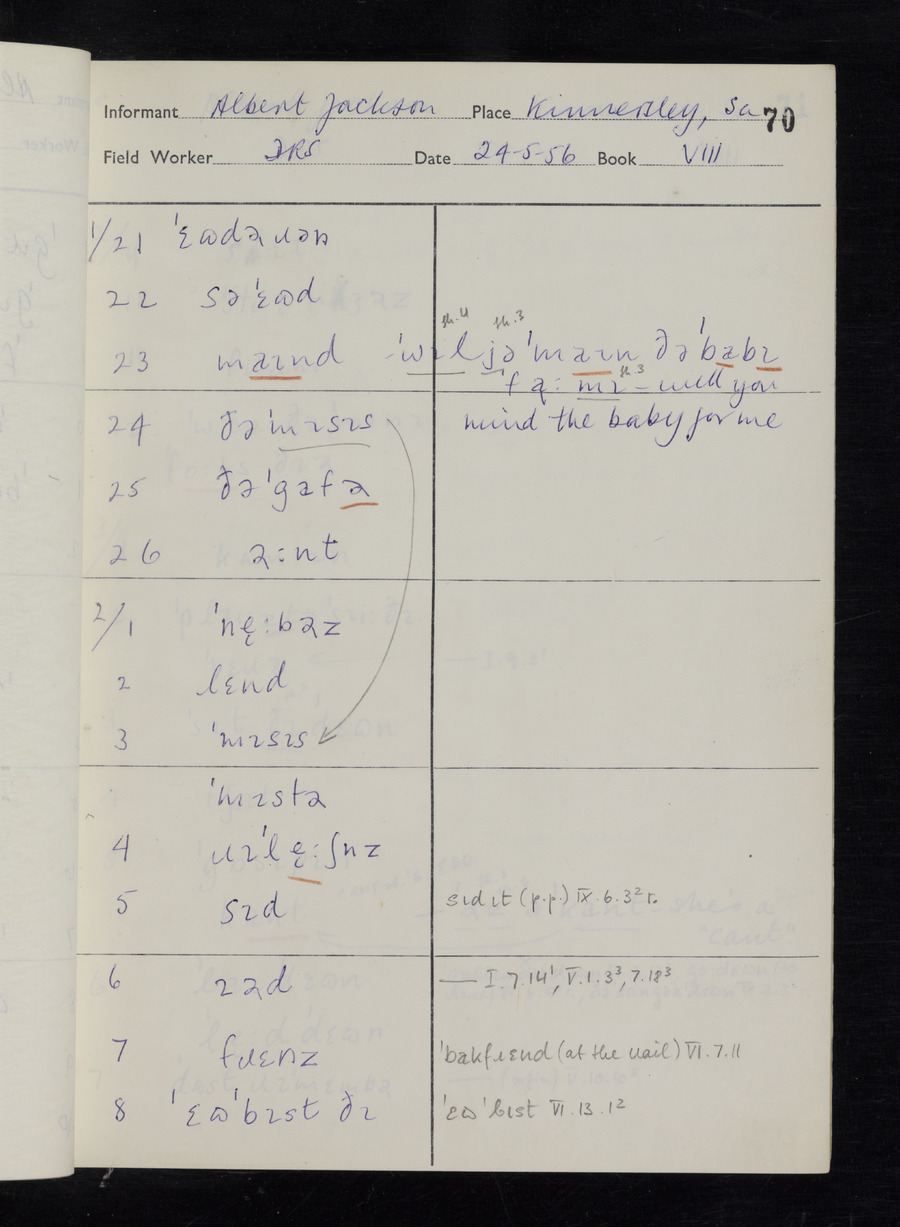 Informant Albert Jackson Place Kinnersley, Sa 70
Field Worker DRS Date 24-5-56 Book VIII
1/21 ˈɛɷdəɹən
22 səˈɛɷd
23 maɪnd ˈwɪl jəˈmaɪn ðəˈbabɪ
sh.4 sh.3
ˈfa: mɪ – will you
sh.3
24 ðəˈmɪsɪs mind the baby for me
25 ðəˈgafə
26 a:nt
2/1 ˈnę:bəz
2 lɛnd
3 ˈmɪsɪs
ˈmɪstə
4 ɹɪˈlę:ʃnz
5 sɪd sɪd ɪt (p.p.) IX.6.3² r.
6 — I.7.14¹, V.1.3³, 7.18³
7 fɹɛnz ˈbakfɹɛnd (at the nail) VI.7.11
8 ˈɛɷˈbɪst ðɪ ˈɛɷˈbɪst VI.13.1²